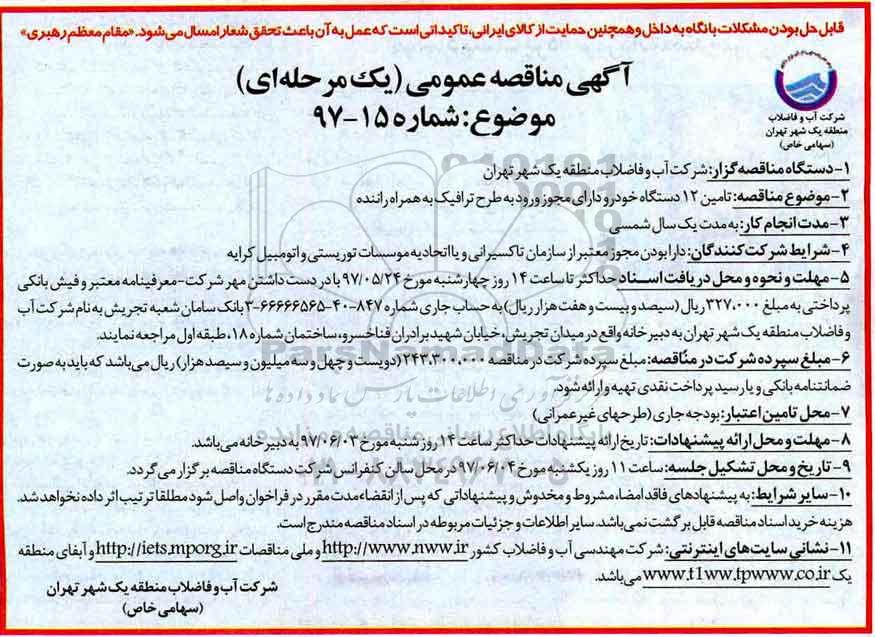 قابل حل بودن مشکلات با نگاه به داخل و همچنین حمایت از کالای ایرانی، تاکیداتی است که عمل به آن باعث تحقق شعار امسال می‌شود. «مقام معظم رهبری»
آگهی مناقصه عمومی (یک مرحله‌ای)
موضوع: شماره ۱۵-۹۷
شرکت آب و فاضلاب
منطقه یک شهر تهران
(سهامی خاص)
۱- دستگاه مناقصه گزار: شرکت آب و فاضلاب منطقه یک شهر تهران
۲- موضوع مناقصه: تامین ۱۲ دستگاه خودرو دارای مجوز ورود به طرح ترافیک به همراه راننده
۳- مدت انجام کار: به مدت یک سال شمسی
۴- شرایط شرکت کنندگان: دارا بودن مجوز معتبر از سازمان تاکسیرانی و یا اتحادیه موسسات توریستی و اتومبیل کرایه
۵- مهلت و نحوه و محل دریافت اسناد حداکثر تا ساعت ۱۴ روز چهارشنبه مورخ ۹۷/۰۵/۲۴ با در دست داشتن مهر شرکت- معرفینامه معتبر و فیش بانکی
پرداختی به مبلغ ۳۲۷.۰۰۰ ریال (سیصد و بیست و هفت هزار ریال) به حساب جاری شماره ۸۴۷-۴۰-۶۶۶۶۶۵۶۵-۳ بانک سامان شعبه تجریش به نام شرکت آب
و فاضلاب منطقه یک شهر تهران به دبیرخانه واقع در میدان تجریش، خیابان شهید برادران فناخسرو، ساختمان شماره ۱۸، طبقه اول مراجعه نمایند.
۶- مبلغ سپرده شرکت در مناقصه: مبلغ سپرده شرکت در مناقصه ۲۴۳.۳۰۰.۰۰۰ (دویست و چهل و سه میلیون و سیصد هزار) ریال می‌باشد که باید به صورت
ضمانتنامه بانکی و یا رسید پرداخت نقدی تهیه و ارائه شود.
۷- محل تامین اعتبار: بودجه جاری (طرحهای غیر عمرانی)
۸- مهلت و محل ارائه پیشنهادات: تاریخ ارائه پیشنهادات حداکثر ساعت ۱۴ روز شنبه مورخ ۹۷/۰۶/۰۳ به دبیرخانه می‌باشد.
۹- تاریخ و محل تشکیل جلسه: ساعت ۱۱ روز یکشنبه مورخ ۹۷/۰۶/۰۴ در محل سالن کنفرانس شرکت دستگاه مناقصه برگزار می گردد.
۱۰- سایر شرایط: به پیشنهادهای فاقد امضاء، مشروط و مخدوش و پیشنهاداتی که پس از انقضاء مدت مقرر در فراخوان واصل شود مطلقا ترتیب اثر داده نخواهد شد.
هزینه خرید اسناد مناقصه قابل برگشت نمی‌باشد. سایر اطلاعات و جزئیات مربوطه در اسناد مناقصه مندرج است.
۱۱- نشانی سایت‌های اینترنتی: شرکت مهندسی آب و فاضلاب کشور http://www.nww.ir و ملی مناقصات http://iets.mporg.ir و آبفای منطقه
یک www.t1ww.tpwww.co.ir می‌باشد.
شرکت آب و فاضلاب منطقه یک شهر تهران
(سهامی خاص)
ParsNamadData
پایگاه اطلاع رسانی مناقصه و مزایده